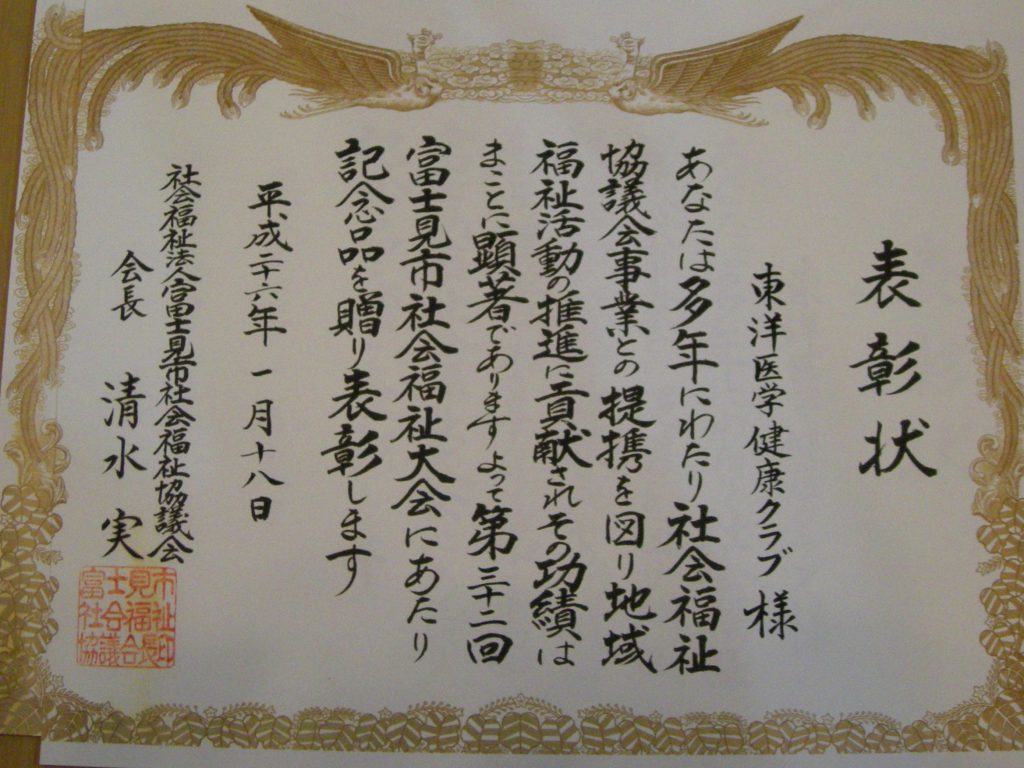 表彰状
東洋医学健康クラブ 様
あなたは多年にわたり社会福祉
協議会事業との提携を図り地域
福祉活動の推進に貢献されその功績は
まことに顕著でありますよって第三十二回
富士見市社会福祉大会にあたり
記念品を贈り表彰します
平成二十六年一月十八日
社会福祉法人富士見市社会福祉協議会
会長 清水 実
富士見市
社会福祉
協議会長印